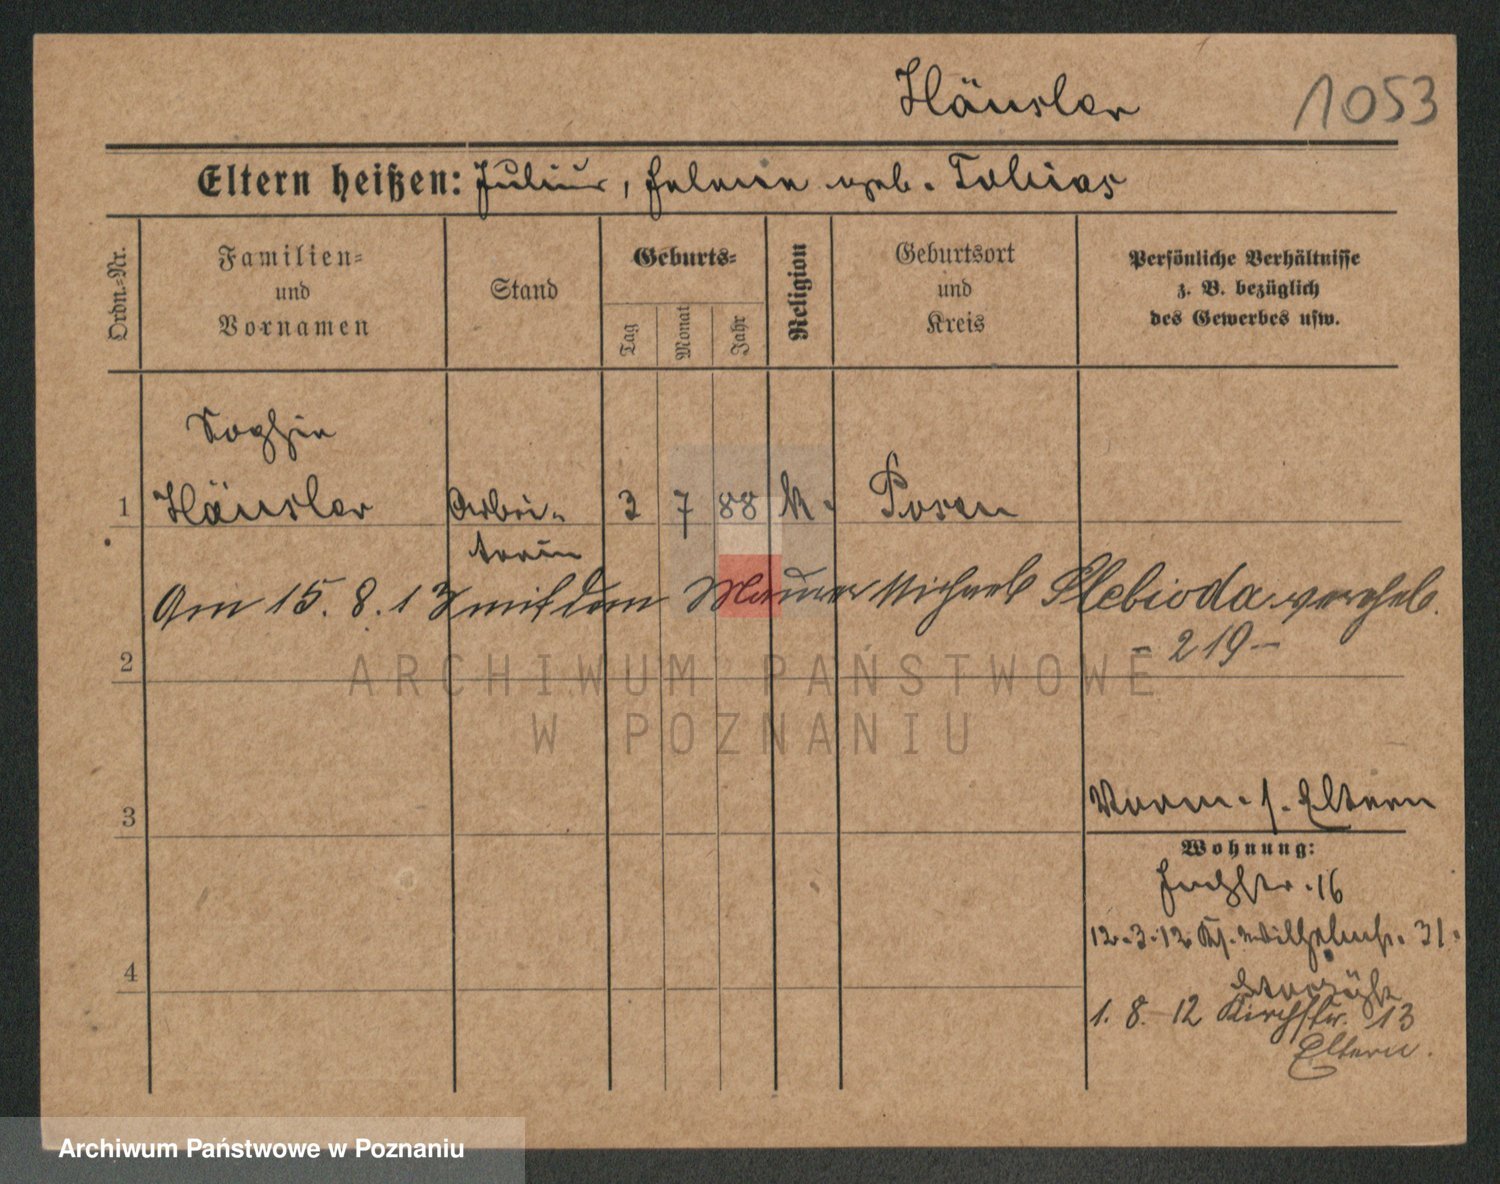 Häusler 1053
Eltern heißen: Julius, Helene geb. Tobias
Ordn.-Nr.
Familien-
und
Vornamen
Stand
Geburts-
Tag
Monat
Jahr
Religion
Geburtsort
und
Kreis
Persönliche Verhältnisse
z. B. bezüglich
des Gewerbes usw.
Sophie
1 Häusler Arbei- 3 7 88 k. Posen
terin
Am 15. 8. 13 mit dem Maurer Michael Slebioda verehel.
- 219 -
2
3
Vorm. s. Eltern
Wohnung:
16
12.3.12 Kr. Wilhelmstr. 31.
4
1. 8. 12 Kirchstr. 13
Eltern.
ARCHIWUM PAŃSTWOWE
W POZNANIU
Archiwum Państwowe w Poznaniu